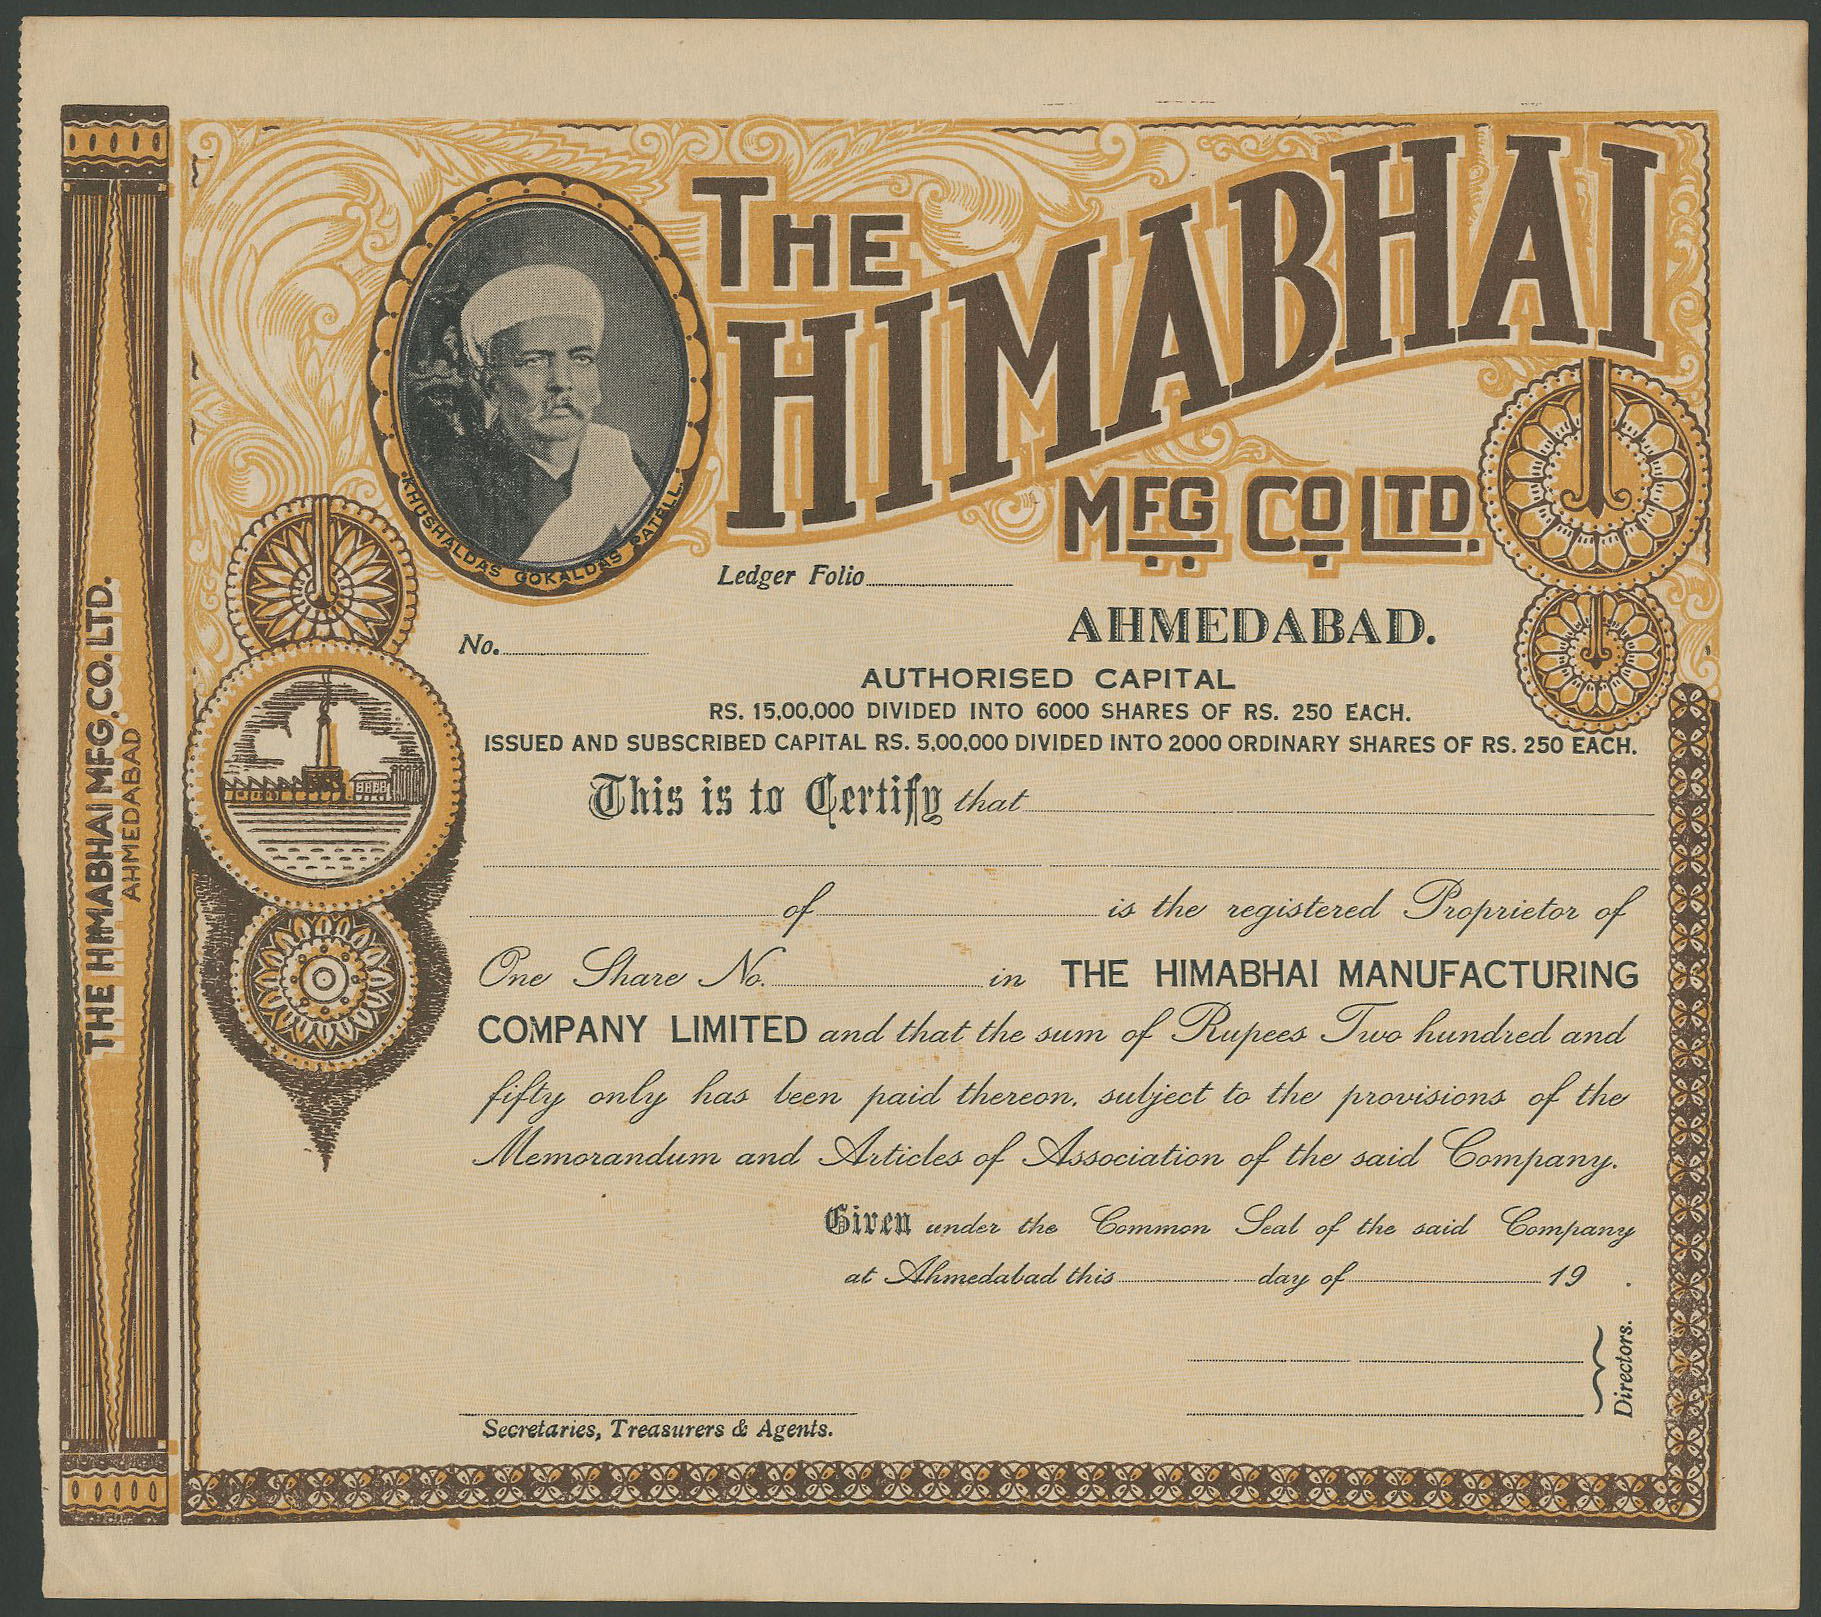 THE
HIMABHAI
MFG CO LTD.
KHUSHALDAS GOKALDAS PATELL.
Ledger Folio
No.
AHMEDABAD.
AUTHORISED CAPITAL
RS. 15,00,000 DIVIDED INTO 6000 SHARES OF RS. 250 EACH.
ISSUED AND SUBSCRIBED CAPITAL RS. 5,00,000 DIVIDED INTO 2000 ORDINARY SHARES OF RS. 250 EACH.
This is to Certify that
of is the registered Proprietor of
One Share No. in THE HIMABHAI MANUFACTURING
COMPANY LIMITED and that the sum of Rupees Two hundred and
fifty only has been paid thereon, subject to the provisions of the
Memorandum and Articles of Association of the said Company.
Given under the Common Seal of the said Company
at Ahmedabad this day of 19 .
Directors.
Secretaries, Treasurers & Agents.
THE HIMABHAI MFG.CO.LTD.
AHMEDABAD.